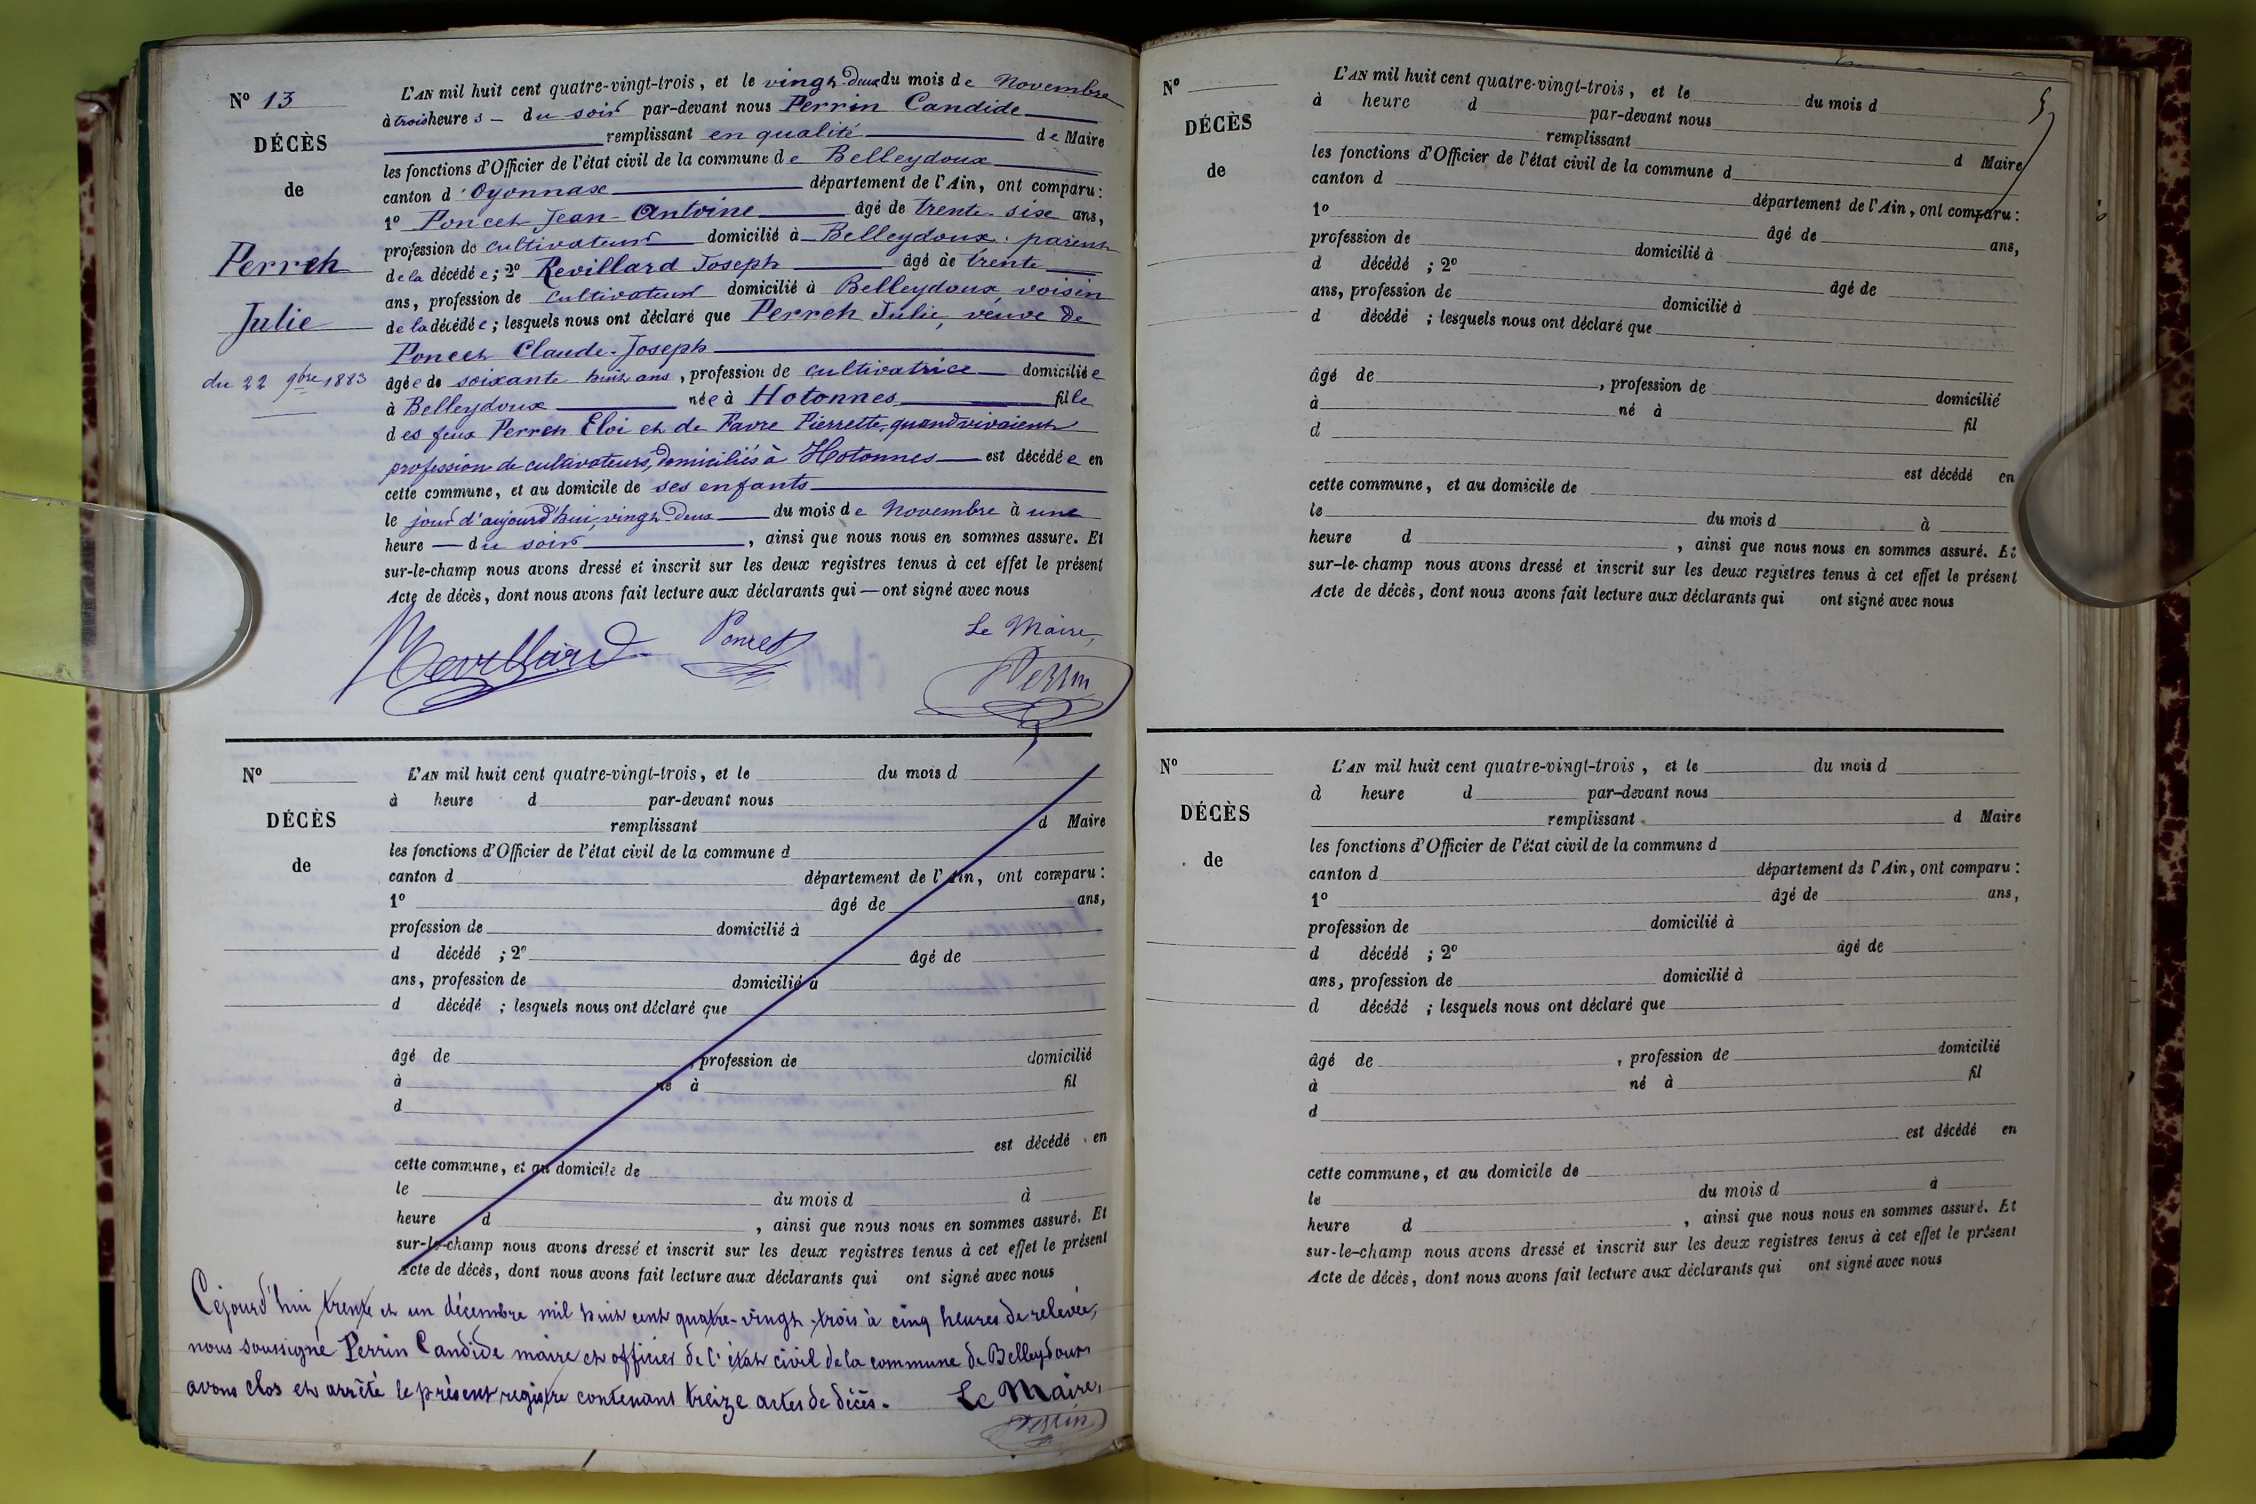 N° 13
DÉCÈS
de
Perret
Julie
du 22 9bre 1883
L'AN mil huit cent quatre-vingt-trois, et le vingt deux du mois de Novembre
à trois heures – du soir par-devant nous Perrin Candide
remplissant en qualité de Maire
les fonctions d'Officier de l'état civil de la commune de Belleydoux
canton d'Oyonnax département de l'Ain, ont comparu :
1° Poncet Jean-Antoine âgé de trente-six ans,
profession de cultivateur domicilié à Belleydoux, parent
de la décédée ; 2° Revillard Joseph âgé de trente
ans, profession de cultivateur domicilié à Belleydoux voisin
de la décédée ; lesquels nous ont déclaré que Perret Julie, veuve de
Poncet Claude-Joseph
âgée de soixante huit ans, profession de cultivatrice domiciliée
à Belleydoux née à Hotonnes fille
des feux Perret Eloi et de Favre Pierrette, quand vivaient
profession de cultivateurs, domiciliés à Hotonnes est décédée en
cette commune, et au domicile de ses enfants
le jour d'aujourd'hui, vingt deux du mois de Novembre à une
heure — du soir, ainsi que nous nous en sommes assuré. Et
sur-le-champ nous avons dressé et inscrit sur les deux registres tenus à cet effet le présent
Acte de décès, dont nous avons fait lecture aux déclarants qui — ont signé avec nous
Le Maire,
Revillard Poncet Perrin
N°
DÉCÈS
de
L'AN mil huit cent quatre-vingt-trois, et le du mois d
à heure d par-devant nous
remplissant d Maire
les fonctions d'Officier de l'état civil de la commune d
canton d département de l'Ain, ont comparu :
1° âgé de ans,
profession de domicilié à
d décédé ; 2° âgé de
ans, profession de domicilié à
d décédé ; lesquels nous ont déclaré que
âgé de , profession de domicilié
à né à fil
d
est décédé en
cette commune, et au domicile de
le du mois d à
heure d , ainsi que nous nous en sommes assuré. Et
sur-le-champ nous avons dressé et inscrit sur les deux registres tenus à cet effet le présent
Acte de décès, dont nous avons fait lecture aux déclarants qui ont signé avec nous
Cejourd'hui trente et un décembre mil huit cent quatre-vingt-trois à cinq heures de relevée,
nous soussigné Perrin Candide maire et officier de l'état civil de la commune de Belleydoux
avons clos et arrêté le présent registre contenant treize actes de décès. Le Maire,
Perrin
N°
DÉCÈS
de
L'AN mil huit cent quatre-vingt-trois, et le du mois d
à heure d par-devant nous
remplissant d Maire
les fonctions d'Officier de l'état civil de la commune d
canton d département de l'Ain, ont comparu :
1° âgé de ans,
profession de domicilié à
d décédé ; 2° âgé de
ans, profession de domicilié à
d décédé ; lesquels nous ont déclaré que
âgé de , profession de domicilié
à né à
d fil
est décédé en
cette commune, et au domicile de
le du mois d à
heure d , ainsi que nous nous en sommes assuré. Et
sur-le-champ nous avons dressé et inscrit sur les deux registres tenus à cet effet le présent
Acte de décès, dont nous avons fait lecture aux déclarants qui ont signé avec nous
N°
DÉCÈS
de
L'AN mil huit cent quatre-vingt-trois, et le du mois d
à heure d par-devant nous
remplissant d Maire
les fonctions d'Officier de l'état civil de la commune d
canton d département de l'Ain, ont comparu :
1° âgé de ans,
profession de domicilié à
d décédé ; 2° âgé de
ans, profession de domicilié à
d décédé ; lesquels nous ont déclaré que
âgé de , profession de domicilié
à né à fil
d
est décédé en
cette commune, et au domicile de
le du mois d à
heure d , ainsi que nous nous en sommes assuré. Et
sur-le-champ nous avons dressé et inscrit sur les deux registres tenus à cet effet le présent
Acte de décès, dont nous avons fait lecture aux déclarants qui ont signé avec nous